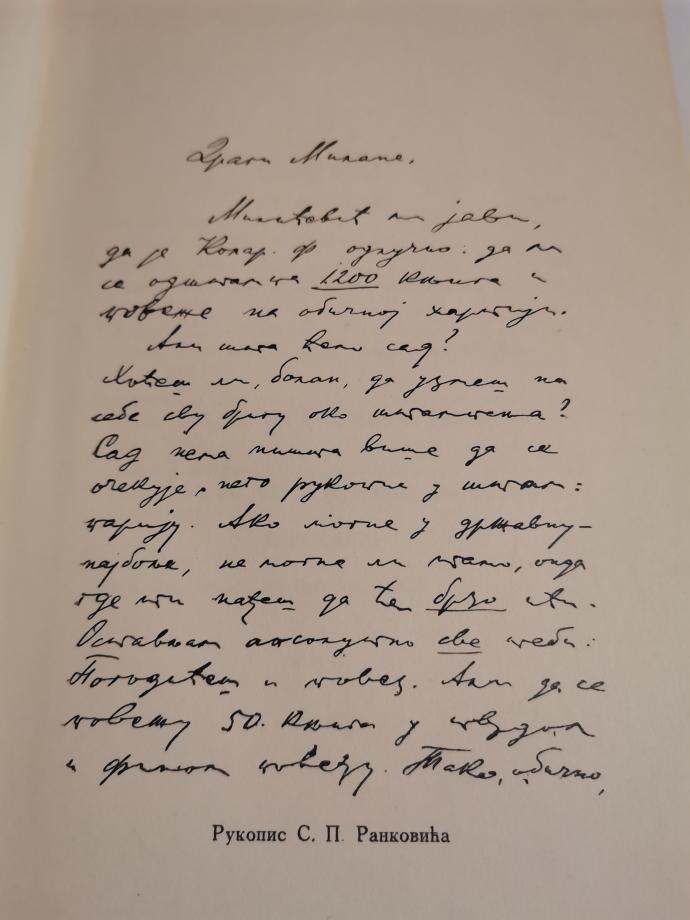 Драги Милане,
Милићевић ми јави,
да је Колар. ф одлучио: да ми
се одштампа 1200 књига и
повеже на обичној хартији.
Али шта ћемо сад?
Хоћеш ли, болан, да узмеш на
себе сву бригу око штампања?
Сад нема ништа више да се
очекује, него рукопис у штам:
парију. Ако може у државну –
најбоље, не може ли тамо, онда
где ти нађеш да ће брзо ићи.
Остављам апсолутно све теби:
Погодићеш и повез. Али да се
повежу 50. књига у тврдом
и фином повезу. Тако, обично,
Рукопис С. П. Ранковића